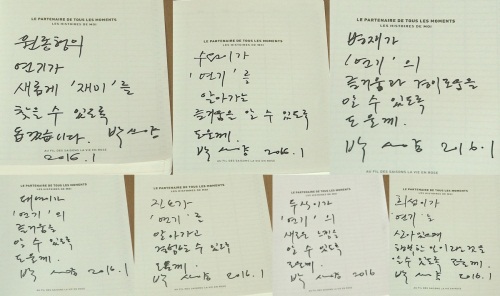 LE PARTENAIRE DE TOUS LES MOMENTS
LES HISTOIRES DE MOI
원종형의
연기가
새롭게 '재미'를
찾을 수 있도록
돕겠습니다. 박
2016.1
LE PARTENAIRE DE TOUS LES MOMENTS
LES HISTOIRES DE MOI
'연기'를
알아가는
즐거움을 알 수 있도록
도울께.
박 2016.1
LE PARTENAIRE DE TOUS LES MOMENTS
LES HISTOIRES DE MOI
범재가
'연기'의
즐거움과 경이로움을
알 수 있도록
도울께.
박 2016.1
AU FIL DES SAISONS LA VIE EN ROSE
LE PARTENAIRE DE TOUS LES MOMENTS
LES HISTOIRES DE MOI
태영이가
'연기'의
즐거움을
알 수 있도록
도울께.
박 2016.1
LE PARTENAIRE DE TOUS LES MOMENTS
LES HISTOIRES DE MOI
'연기'를
알아가고
경험할 수 있도록
도울께.
박 2016.1
LE PARTENAIRE DE TOUS LES MOMENTS
LES HISTOIRES DE MOI
두식이가
'연기'의
새로운 느낌을
알 수 있도록
도울께.
박 2016
LE PARTENAIRE DE TOUS LES MOMENTS
LES HISTOIRES DE MOI
희섭이가
연기를
행복한
알 수 있도록 도울께.
박 2016.1